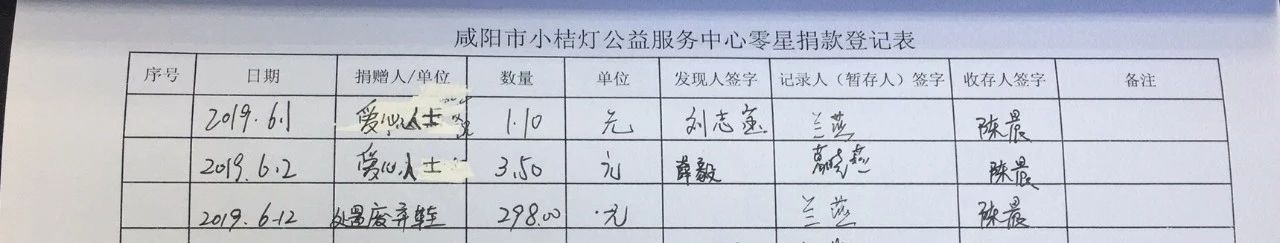 咸阳市小桔灯公益服务中心零星捐款登记表
序号 日期 捐赠人/单位 数量 单位 发现人签字 记录人（暂存人）签字 收存人签字 备注
2019.6.1 爱心人士 1.10 元 刘志 兰燕 陈晨
2019.6.2 爱心人士 3.50 元 薛毅 陈晨
2019.6.12 处置废弃鞋 298.00 元 兰燕 陈晨